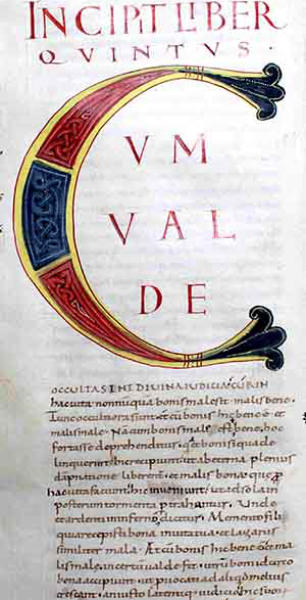 INCIPIT LIBER
QVINTVS ·
CVM
VAL
DE
OCCULTA SINT DIVINA IUDICIA CUR IN
hac uita nonnumqua bonis male est · malis bene ·
Tunc occultiora sunt et cu bonis hic bene e et
malis male · Na cum bonis male e · malis bene, hoc
fortasse deprehenditur
linquerunt hic recipiunt ut ab eterna plenius
dapnatione liberent et malis bona que p
hac uita faciunt hic inueniunt ut ad sola in
posterum tormenta ptrahantur · Unde
et ardenti in inferno diciturc · Memento fili
quia recepisti bona in uita tua et lazarus
similiter mala · At cu bonis hic bene e et ma
lis male, incertu ualde fit · utru boni idcirco
bona accipiunt · ut puocati ad aliqd melius
crescant · an iusto latentiq; iudicio hic suoru